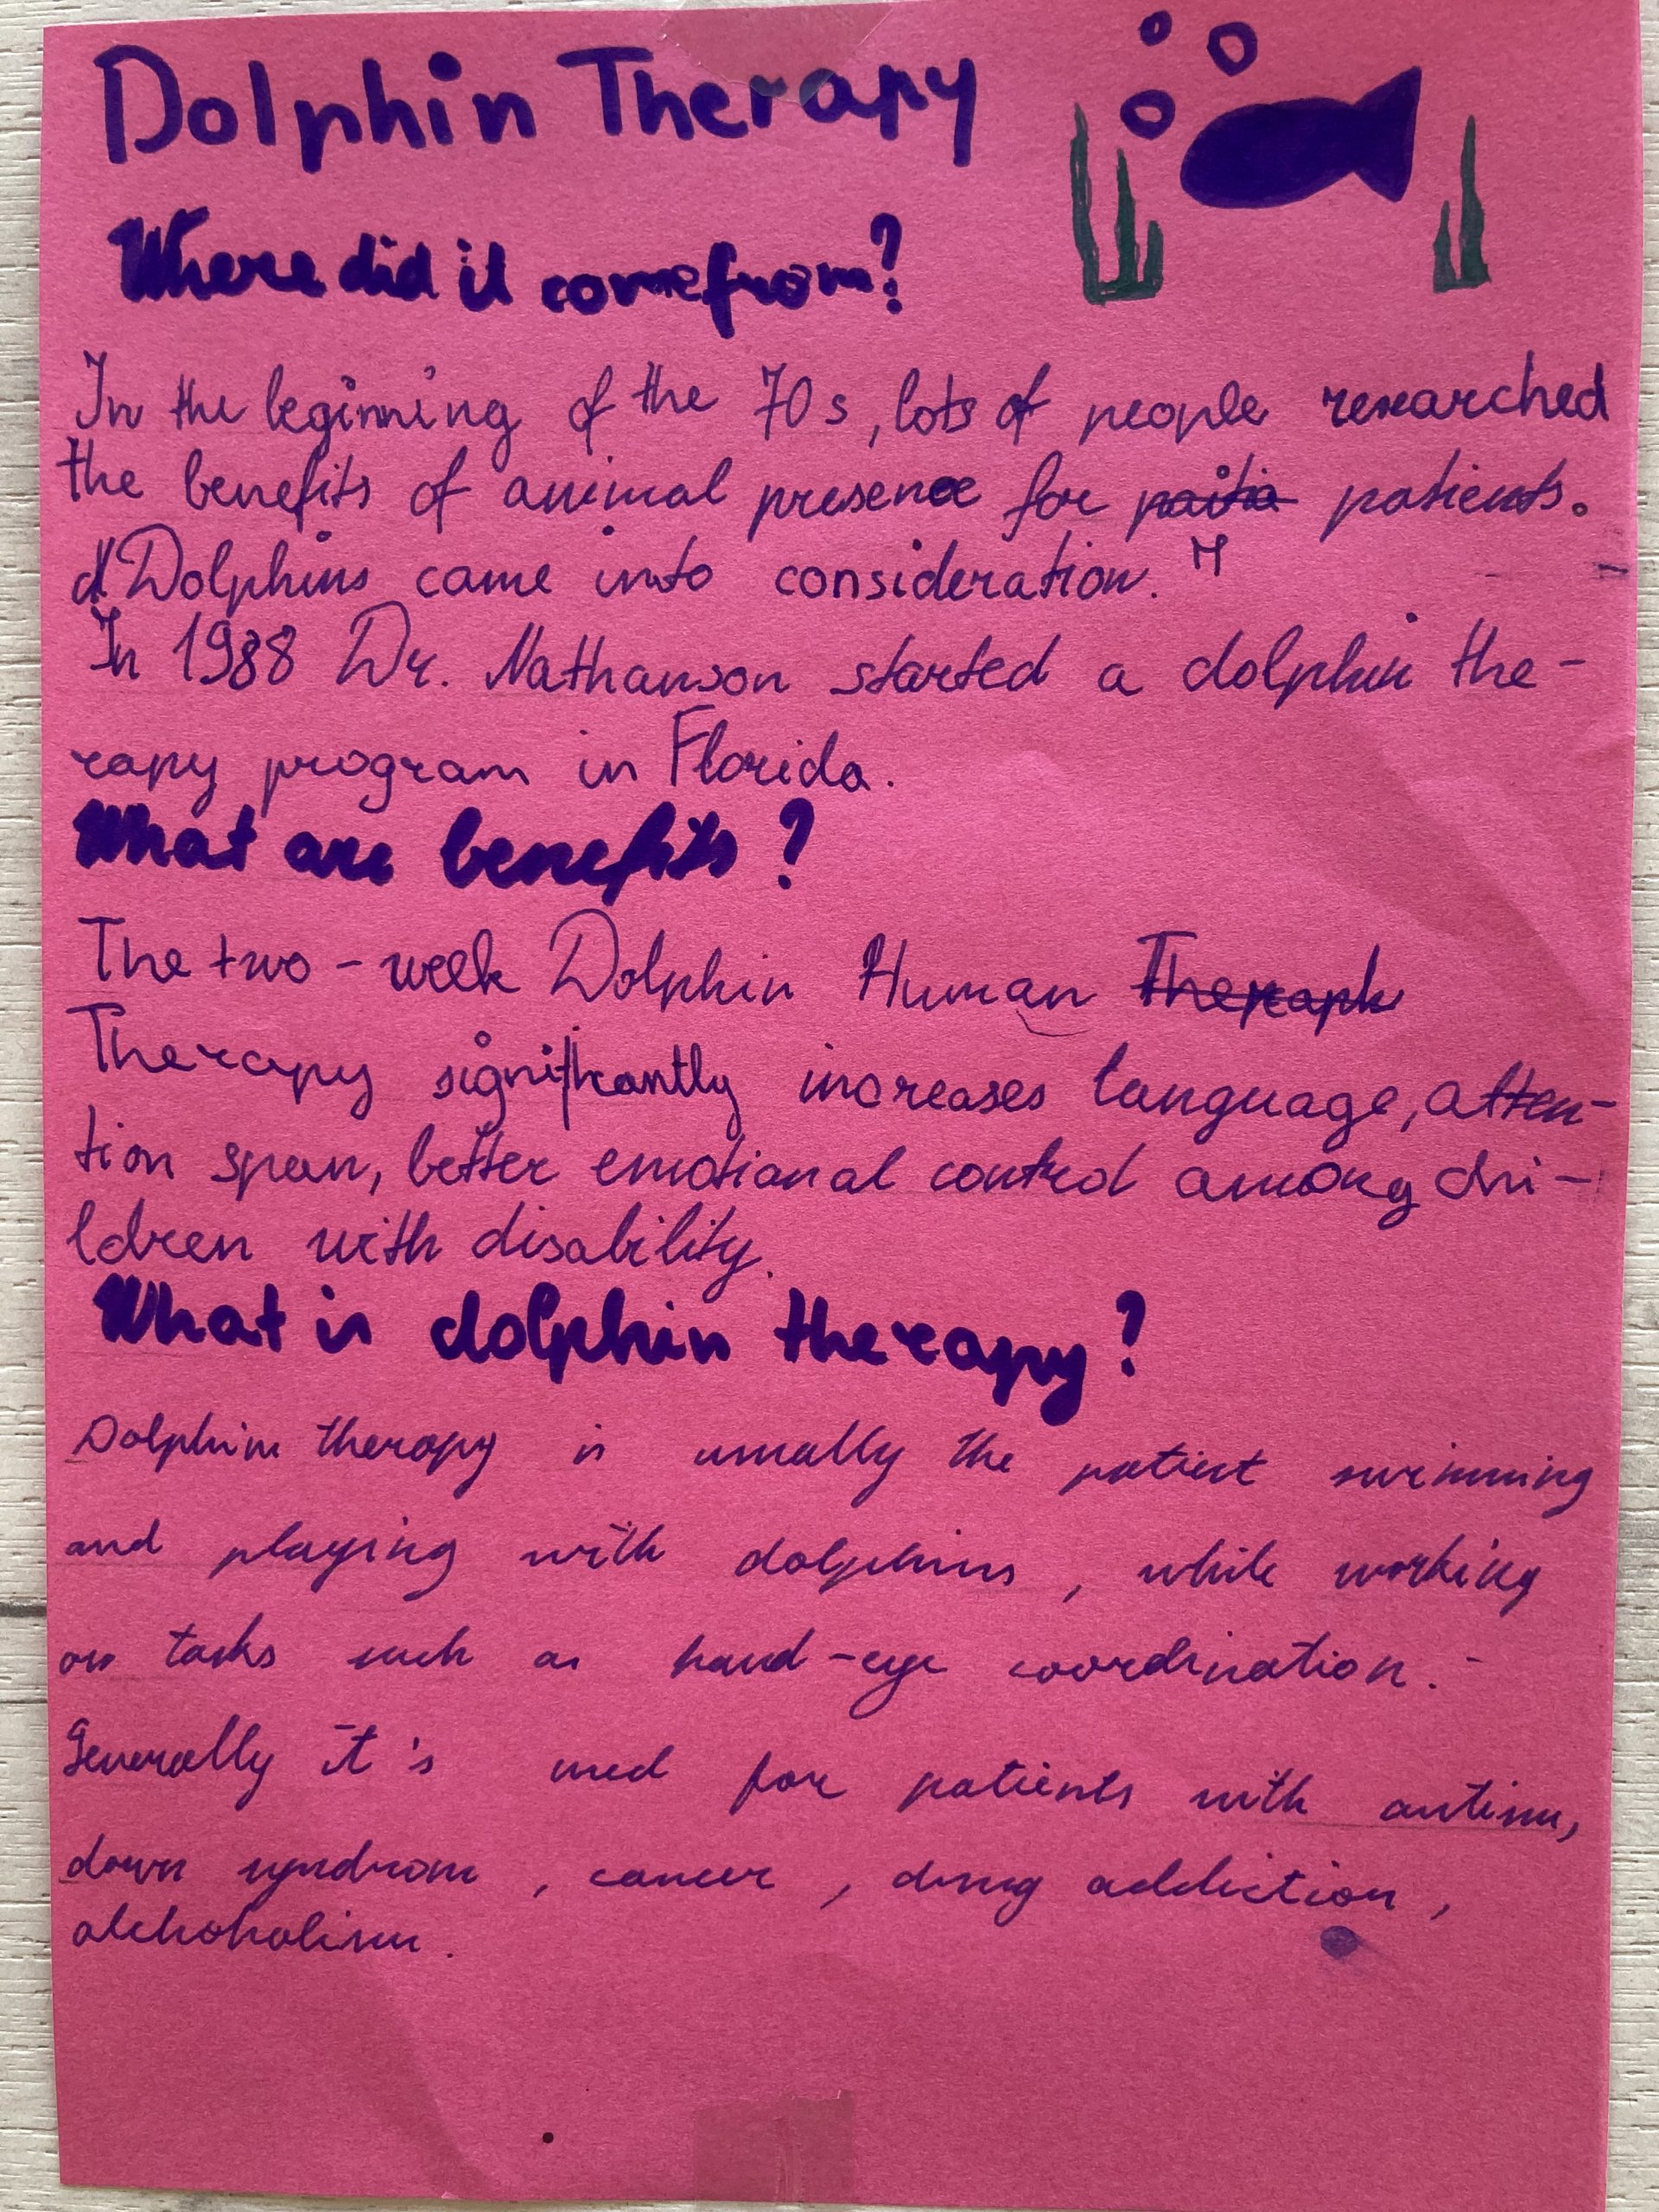 Dolphin Therapy
Where did it come from?
In the beginning of the 70s, lots of people researched
the benefits of animal presence for patients.
Dolphins came into consideration.
In 1988 Dr. Nathanson started a dolphin the-
rapy program in Florida.
What are benefits?
The two-week Dolphin Human
Therapy significantly increases language, atten-
tion span, better emotional control among chi-
ldren with disability.
What is dolphin therapy?
Dolphin therapy is usually the patient swimming
and playing with dolphins, while working
on tasks such as hand-eye coordination.
Generally it's used for patients with autism,
down syndrom, cancer, drug addiction,
alchoholism.